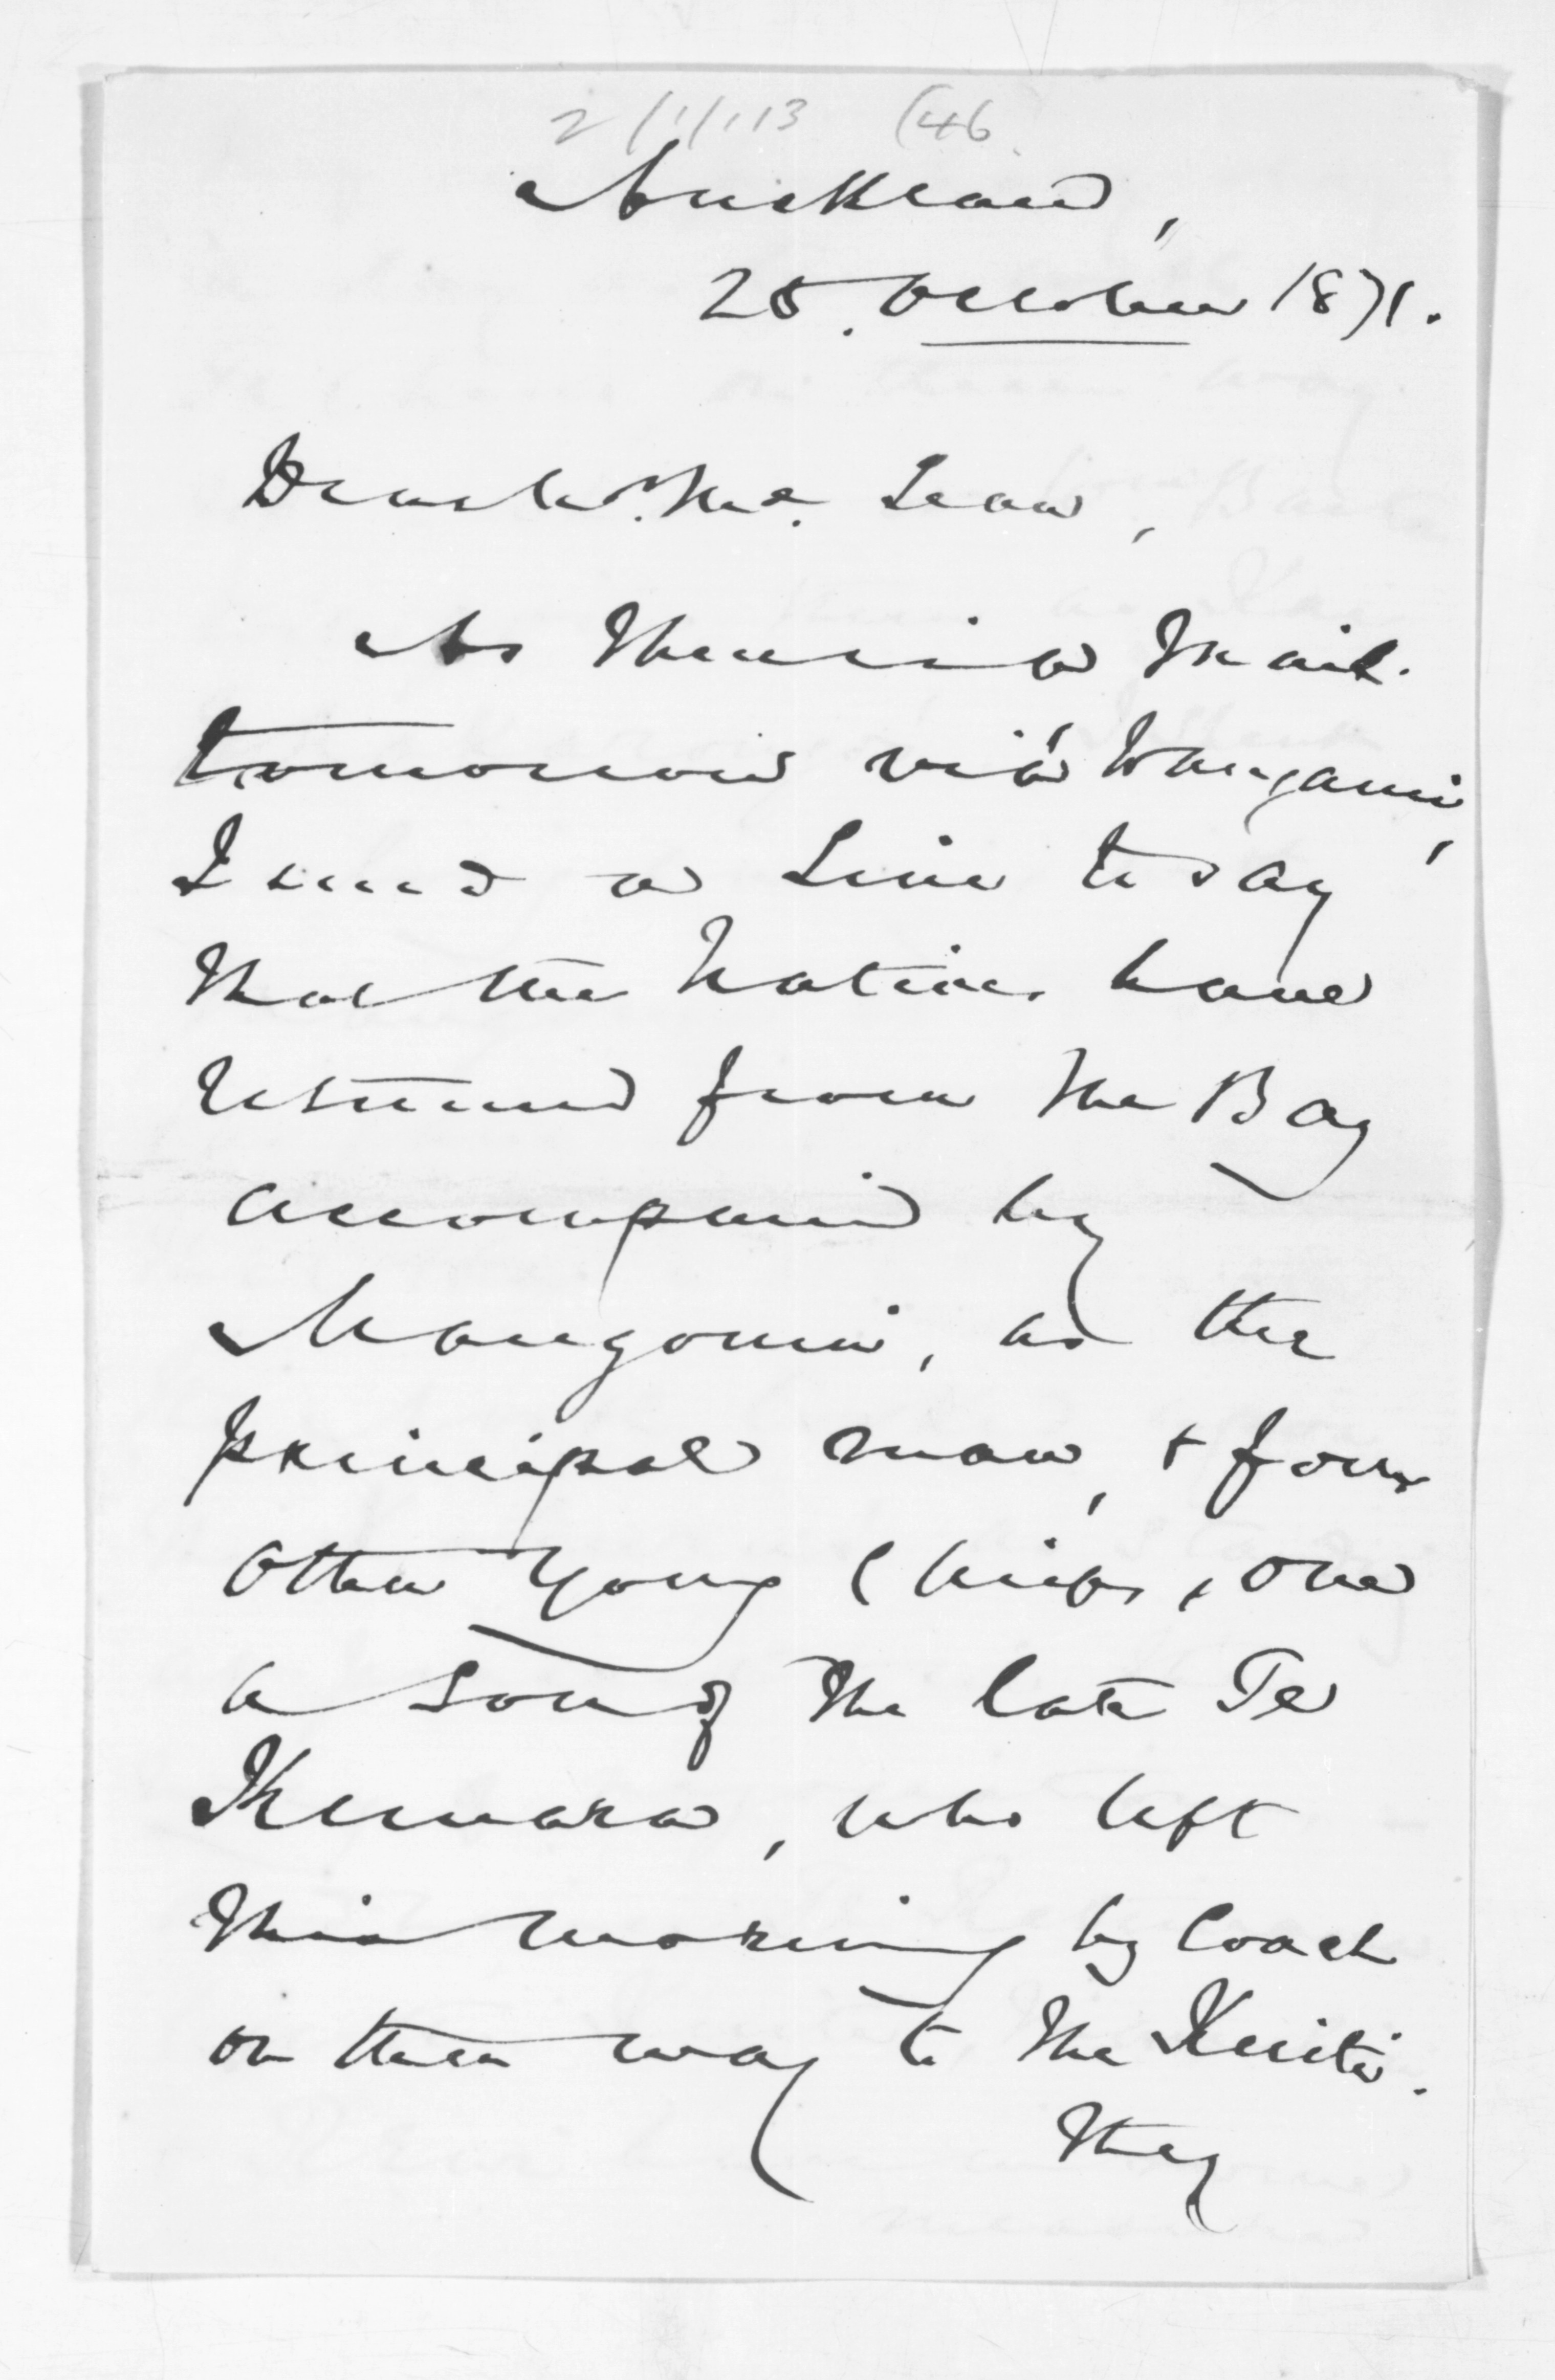 2/1/113 (46
Auckland,
25. October 1871.
Dear Mr. Mc. Lean,
As there is a Mail
tomorrow viâ Wanganui,
I send a line to say
that the Natives have
returned from the Bay
accompanied by
Maugonui, as the
principal man, & four
other young Chiefs, one
a son of the late Te
Kemara, who left
this morning by Coach
on their way to the Kuiti.
They